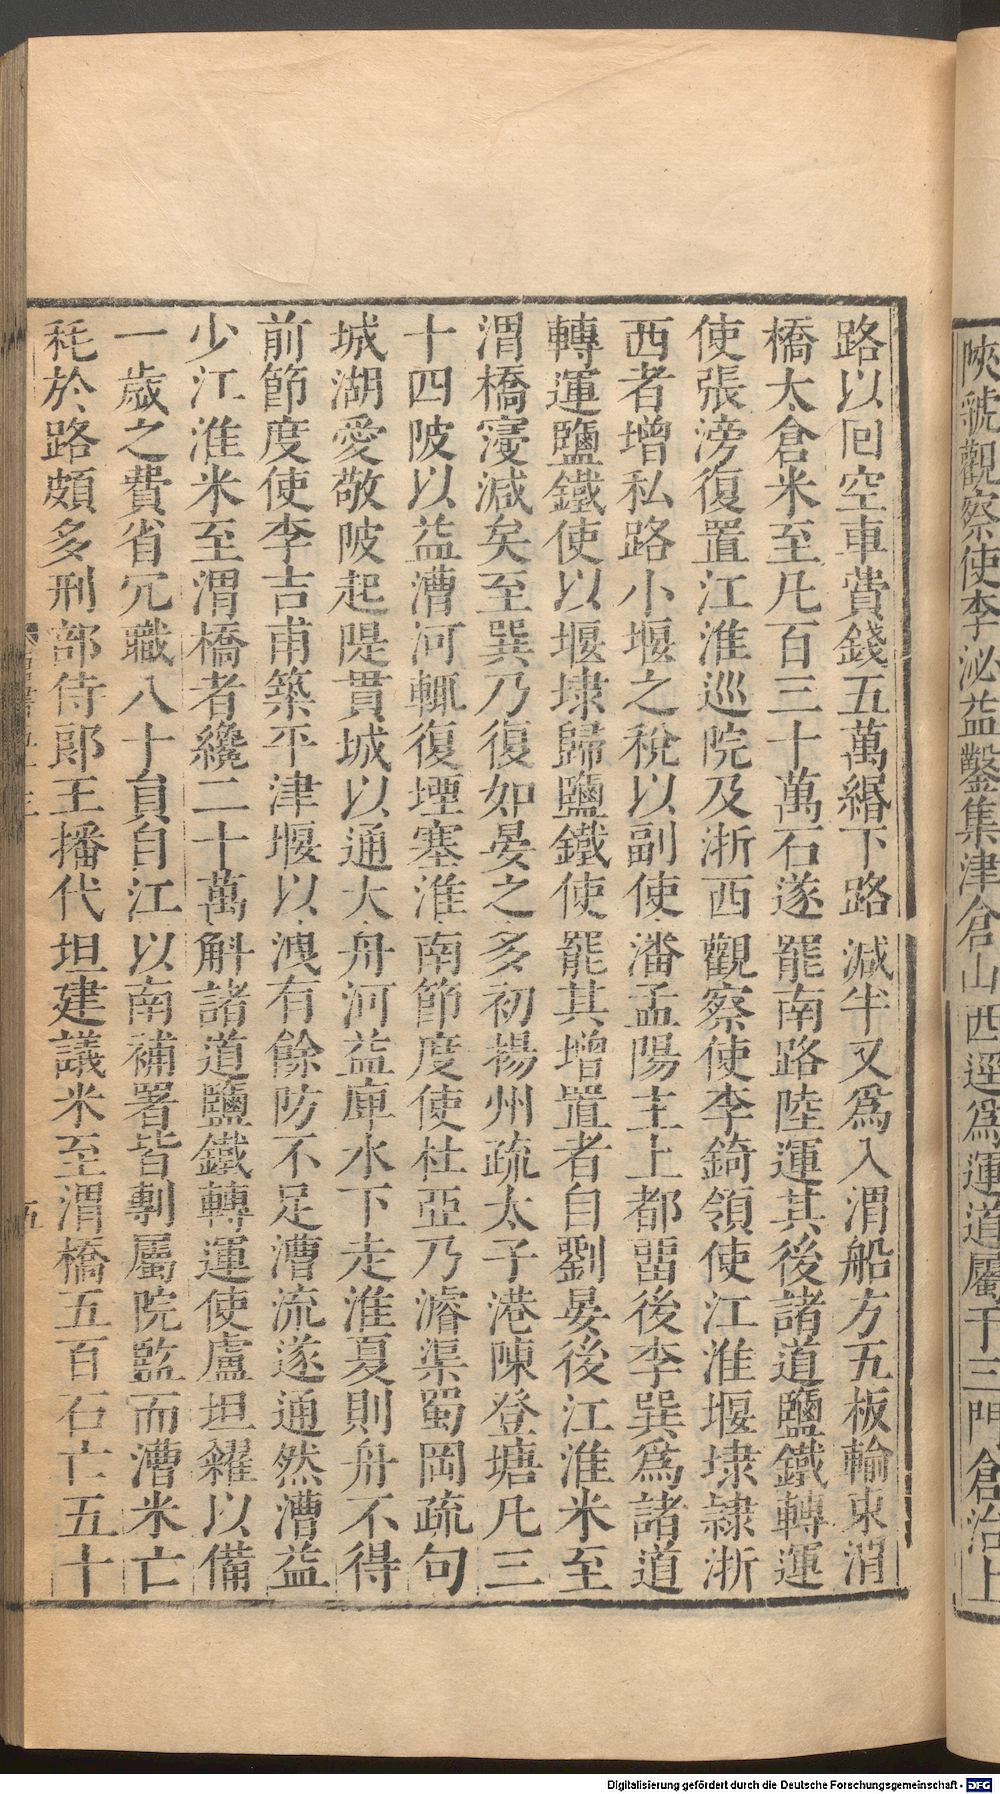 陝虢觀察使李泌益鑿集津倉山西逕爲運道屬于三門倉治上
路以回空車費錢五萬緡下路減半又爲入渭船方五板輸東渭
橋太倉米至凡百三十萬石遂罷南路陸運其後諸道鹽鐵轉運
使張滂復置江淮巡院及浙西觀察使李錡領使江淮堰埭隷浙
西者增私路小堰之稅以副使潘孟陽主上都畱後李巽爲諸道
轉運鹽鐵使以堰埭歸鹽鐵使罷其增置者自劉晏後江淮米至
渭橋寖減矣至巽乃復如晏之多初揚州疏太子港陳登塘凡三
十四陂以益漕河輒復堙塞淮南節度使杜亞乃濬渠蜀岡疏句
城湖愛敬陂起隄貫城以通大舟河益庳水下走淮夏則舟不得
前節度使李吉甫築平津堰以洩有餘防不足漕流遂通然漕益
少江淮米至渭橋者纔二十萬斛諸道鹽鐵轉運使盧坦糴以備
一歲之費省冗職八十員自江以南補署皆剸屬院監而漕米亡
秏於路頗多刑部侍郎王播代坦建議米至渭橋五百石亡五十
五
Digitalisierung gefördert durch die Deutsche Forschungsgemeinschaft - DFG